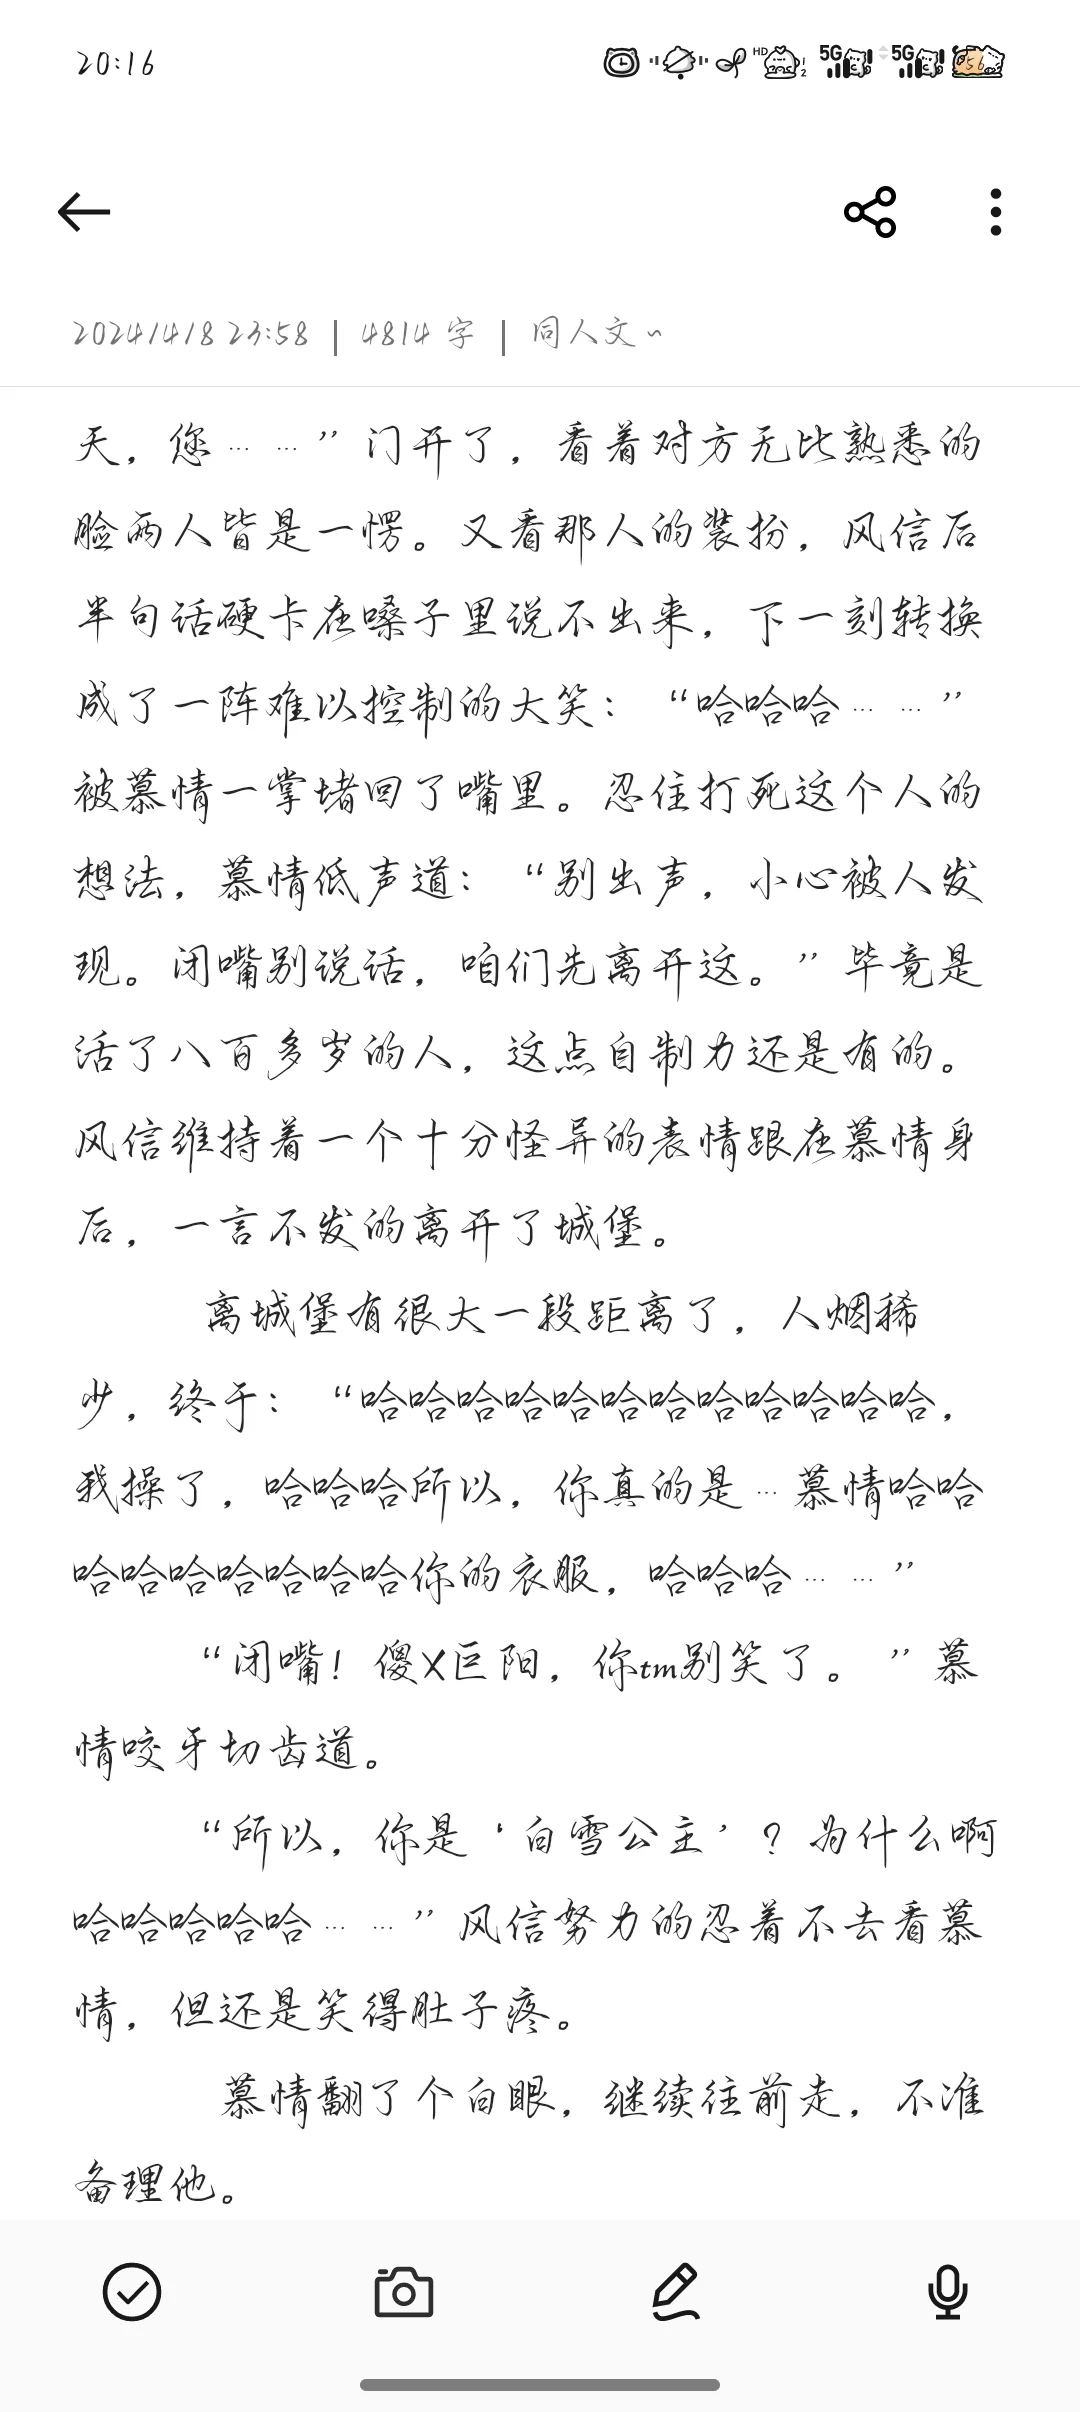 20:16
HD 1 2 5G 5G 56
2024/4/8 23:58 | 4814 字 | 同人文~
天，您……”门开了，看着对方无比熟悉的
脸两人皆是一愣。又看那人的装扮，风信后
半句话硬卡在嗓子里说不出来，下一刻转换
成了一阵难以控制的大笑：“哈哈哈……”
被慕情一掌堵回了嘴里。忍住打死这个人的
想法，慕情低声道：“别出声，小心被人发
现。闭嘴别说话，咱们先离开这。”毕竟是
活了八百多岁的人，这点自制力还是有的。
风信维持着一个十分怪异的表情跟在慕情身
后，一言不发的离开了城堡。
离城堡有很大一段距离了，人烟稀
少，终于：“哈哈哈哈哈哈哈哈哈哈哈哈，
我操了，哈哈哈所以，你真的是…慕情哈哈
哈哈哈哈哈哈哈你的衣服，哈哈哈……”
“闭嘴！傻X巨阳，你tm别笑了。”慕
情咬牙切齿道。
“所以，你是‘白雪公主’？为什么啊
哈哈哈哈哈……”风信努力的忍着不去看慕
情，但还是笑得肚子疼。
慕情翻了个白眼，继续往前走，不准
备理他。